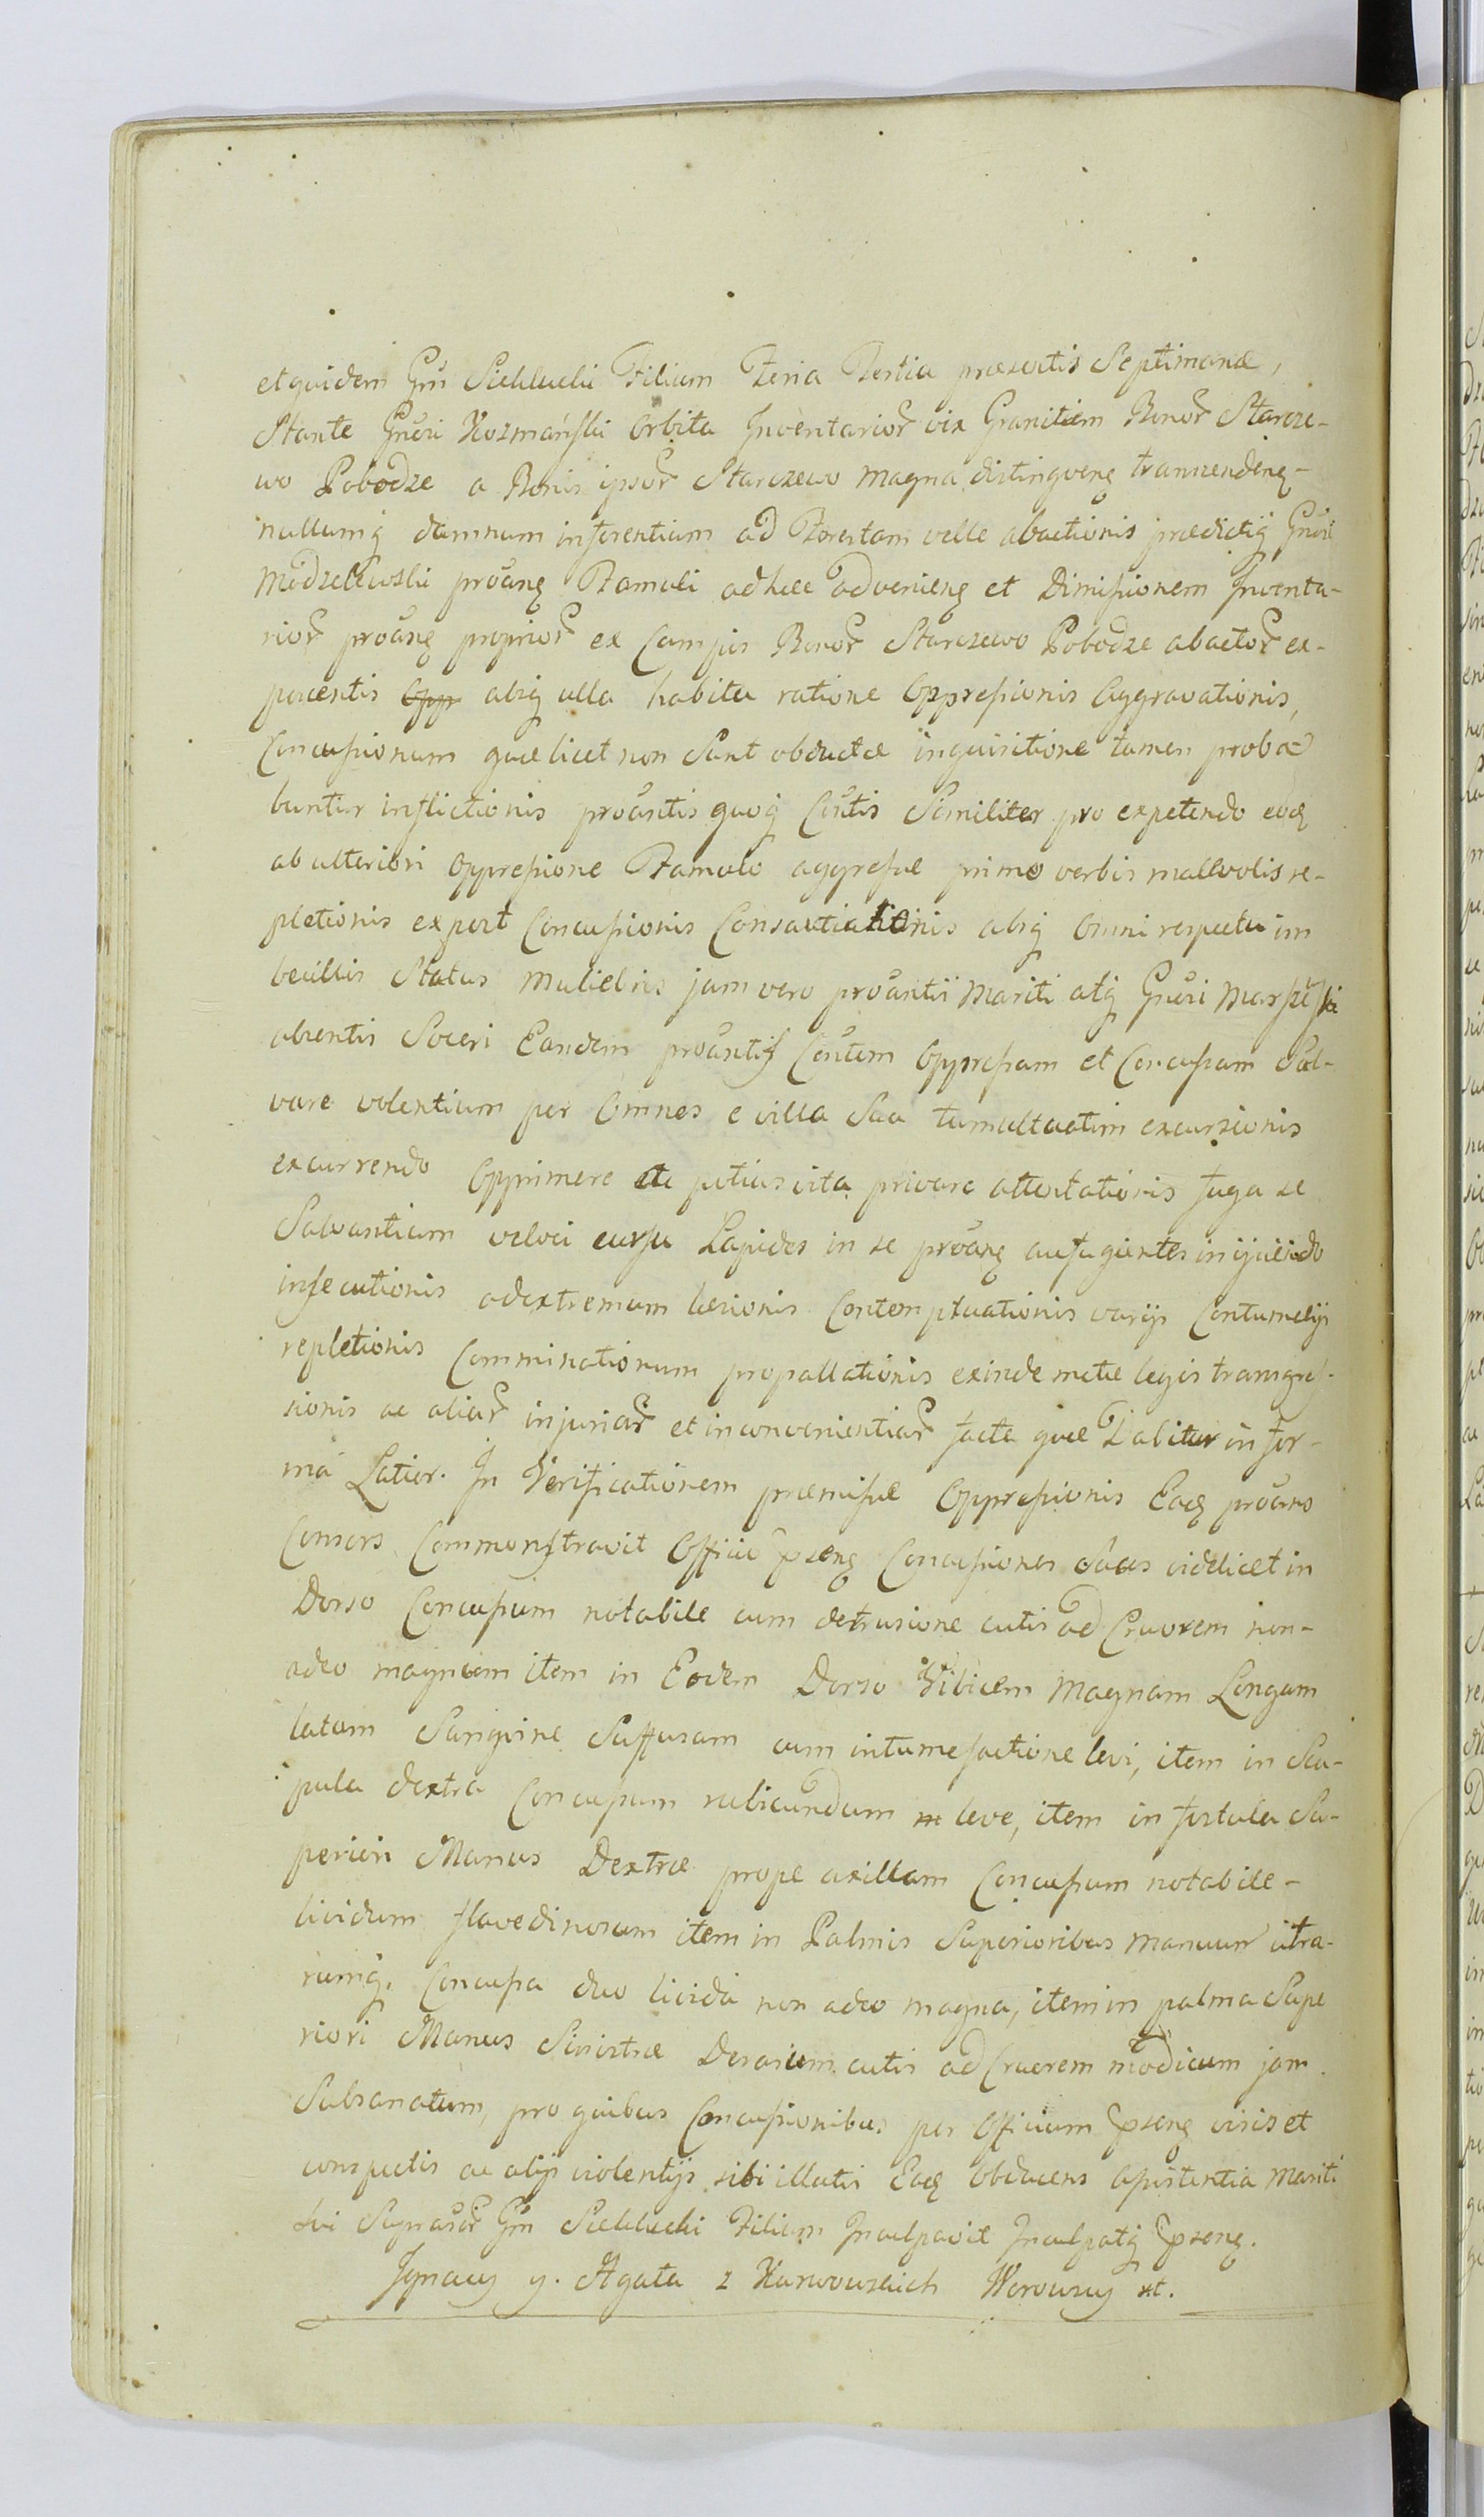 et quidem Grsi Sieklucki Filium Feria Tertia præsentis Septimanæ,
Stante Gnsri Kozmański Orbita Inventarior̃ vix Granitiem Bonor̃ Starcze-
wo Pobodze a Bonis ipsor̃ Starczewo magna distingveng transcendeng-
nullumq damnum inferentium ad Forestam velle abactionis prædictiq Gnsri
Modzelewski proang Famuli adhæc advenieng et Dimissionem Inventa-
rior̃ proang proprior̃ ex Campis Bonor̃ Starczewo Pobodze abactor̃ ex-
poscentis absq ulla habita ratione Oppressionis Aggravationis,
Concussionum quæ licet non Sunt obductæ inquisitione tamen proba
buntur inflictionis proantis quoq Contis Similiter pro expetendo eodq
ab ulteriori Oppressione Famulo aggressæ primo verbis malevolis re-
pletionis ex post Concussionis Consauciationis absq Omni respectu im
becillis Status muliebris jam vero proantis Mariti atq Gnsri
absentis Soceri Eandem proantis Contem Oppressam et Concussam Sal-
vare volentium per Omnes e villa Sua tumultuatim excursionis
excurrendo Opprimere et potius vita privare attentationis fuga se
Salvantium veloci cursu Lapides in se proang aufugientes injiciendo
insecutionis ad extremum læsionis Contemptuationis varijs Contumelijs
repletionis Comminationum propallationis exinde metæ legis transgres-
sionis ac aliar̃ injuriar̃ et inconvenientiar̃ facta quæ Dabitur in for-
ma Latior. In Verificationem præmissæ Oppressionis Eadq proans
Consors Commonstravit Officio pseng Concussiones Suas videlicet in
Dorso Concussum notabile cum detrusione cutis ad Cruorem non-
adeo magnum item in Eodem Dorso Vibicem Magnam Longam
latam Sangvine Suffusam cum intumefactione levi, item in Sca-
pula dextra Concussum rubicundum leve, item in fistula Su-
periori Manus Dextræ prope axillam Concussum notabile-
lividum flavedinosum item in Palmis Superioribus manuum utra-
rumq. Concussa duo livida non adeo magna, item in palma Supe
riori Manus Sinistræ Derasum cutis ad Cruorem modicum jam
Subsanatum, pro quibus Concussionibus per Officium pseng visis et
conspectis ac alijs violentijs sibi illatis Eadq Obducens Assistentia Mariti
sui Supraser̃ Gsn Sieklucki Filium Inculpavit Inculpatq pseng.
Ignacy y. Agata z Karwowskich Worowscy